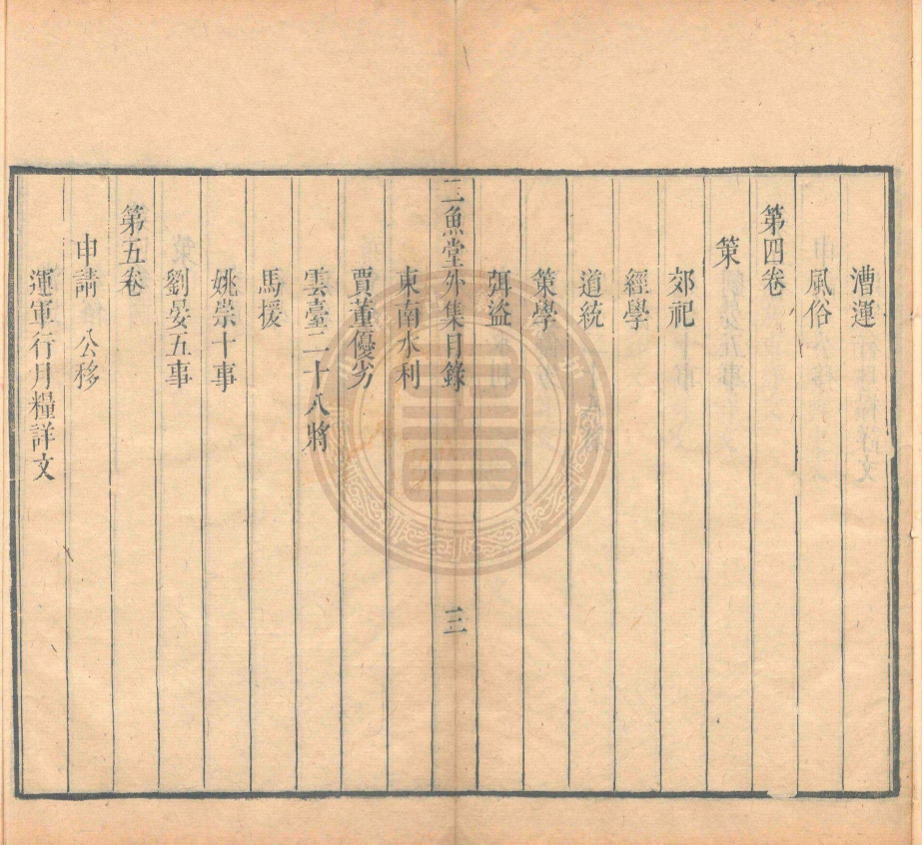 漕運
風俗
第四卷
策
郊祀
經學
道統
策學
弭盜
三魚堂外集目錄
三
東南水利
賈董優劣
雲臺二十八將
馬援
姚崇十事
劉晏五事
第五卷
申請 公移
運軍行月糧詳文